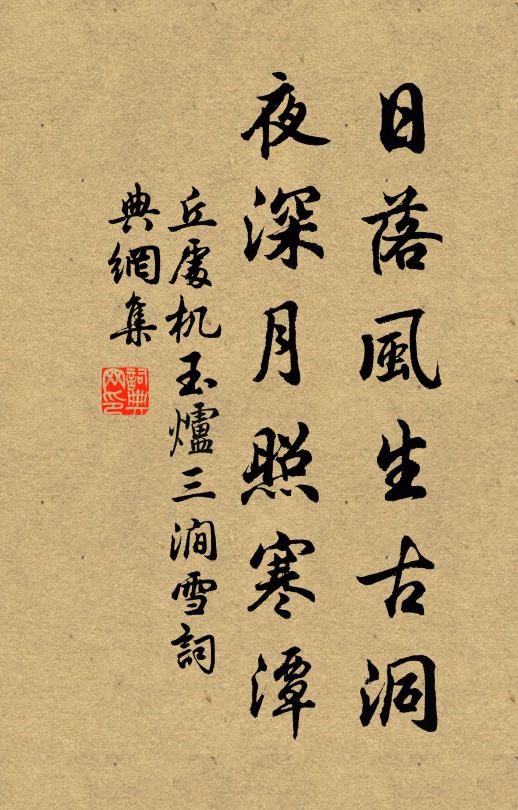 日落風生古洞
夜深月照寒潭
丘處机玉爐三澗雪詞
典網集
詞典
网印